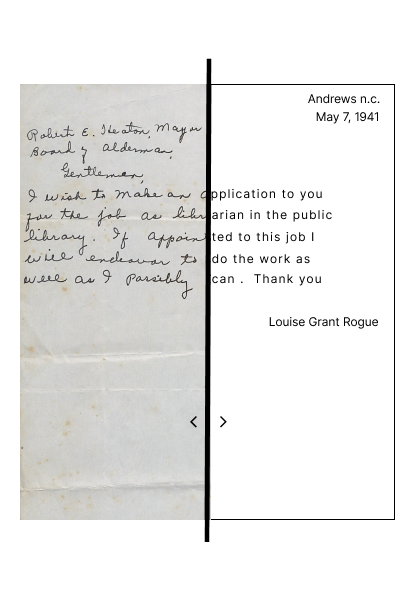 Andrews n.c.
May 7, 1941
Robert E. Heaton, Mayor
Board of Alderman,
Gentlemen,
I wish to make an application to you
for the job as librarian in the public
library. If appointed to this job I
will endeavor to do the work as
well as I possibly can . Thank you
Louise Grant Rogue